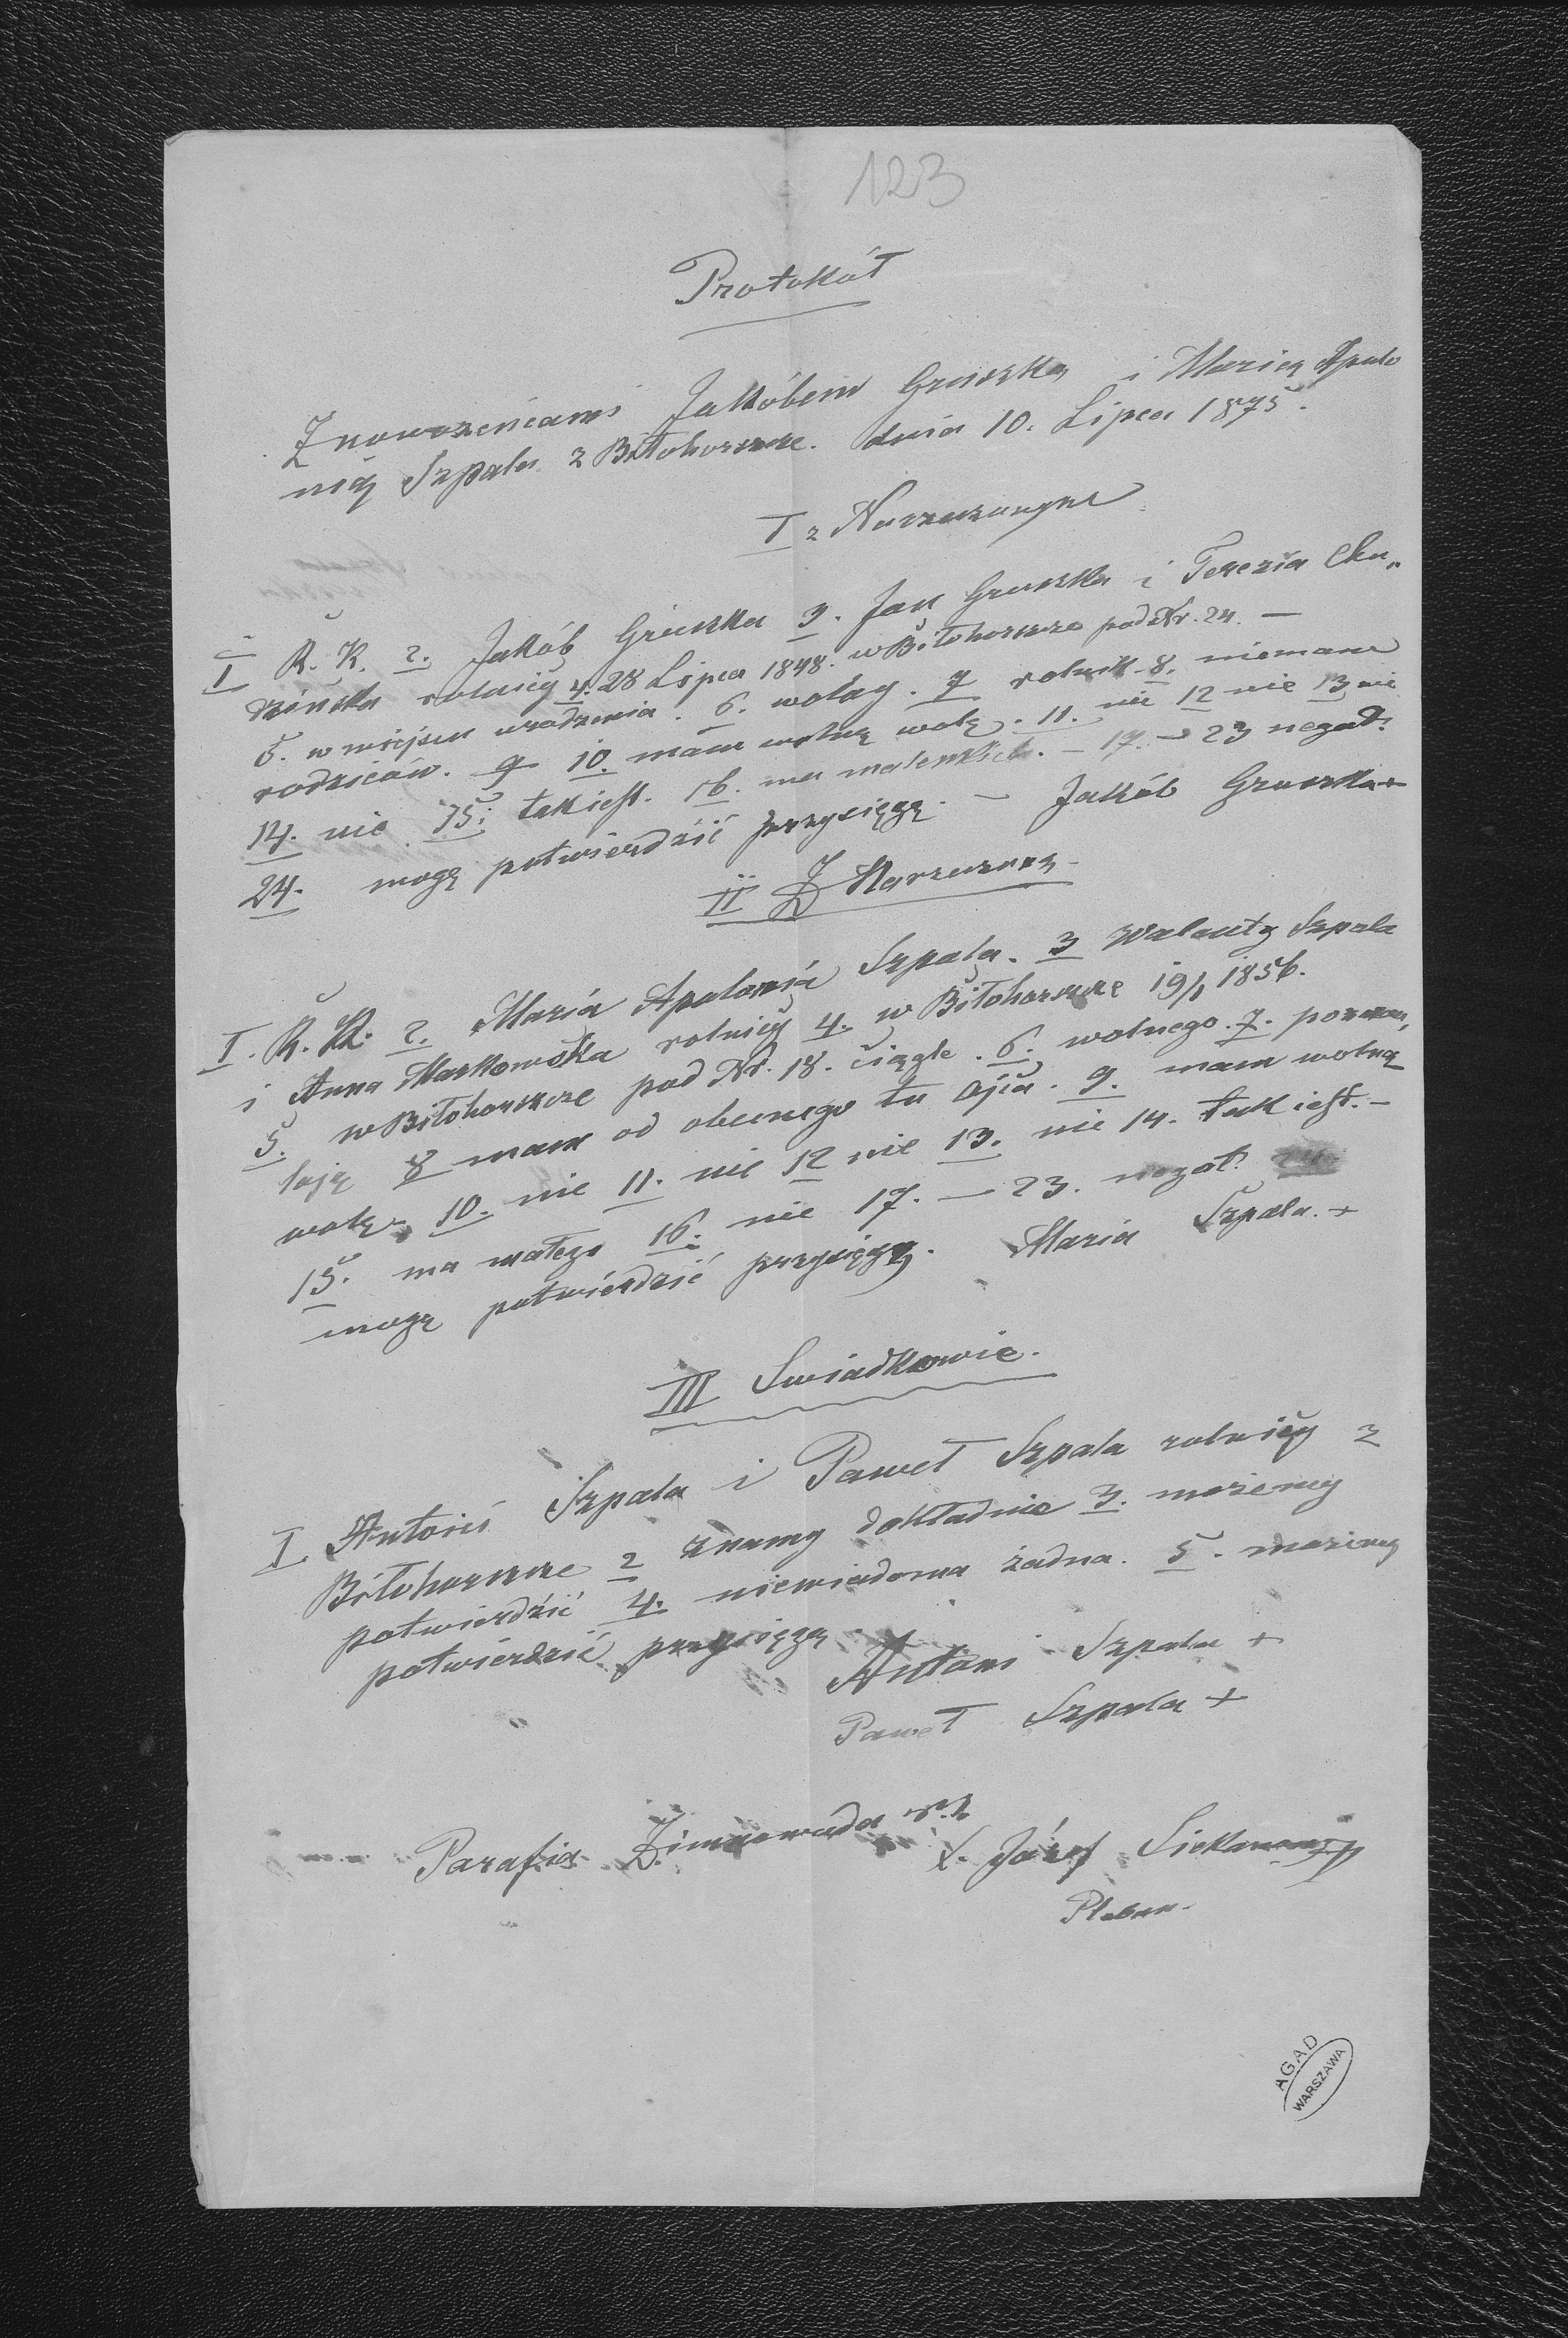 123
Protokół
Z nowożeńcami Jakóbem Gruszką i Marią Apolo
nią Szpala z Biłohorszcze. dnia 10. Lipca 1875.
I z Narzeczonym
I R. K. 2. Jakób Gruszka 3. Jan Gruszka i Terezia Chu„
dzińska rolnicy 4. 28 Lipca 1848. w Biłohorszcze pod Nr. 24. —
5. w miejscu urodzenia. 6. wolny. 7 rolnik. 8. niemam
rodziców. 9 10. mam wolną wolę. 11. nie 12 nie 13 nie
14. nie 15. tak jest. 16. ma maleńkich. — 17. — 23 negat:
24. mogę potwierdzić przysięgą. — Jakób Gruszka +
II Z Narzeczoną —
I. R. K. 2. Maria Apolonia Szpala. 3 Walenty Szpala
i Anna Markowska rolnicy 4. w Biłohorszcze 19/1 1856.
5. w Biłohorszcze pod Nr. 18. ciągle. 6. wolnego. 7.
8 mam od obecnego tu Ojca. 9. mam wolną
wolę. 10. nie 11. nie 12 nie 13. nie 14. tak jest. —
15. ma małego 16. nie 17. — 23. negat:
mogę potwierdzić przysięgą. Maria Szpala. +
III Swiadkowie.
I Antoni Szpala i Paweł Szpala rolnicy z
Biłohorszcze 2 znamy dokładnie 3. możemy
potwierdzić 4. niewiadoma żadna. 5. możemy
potwierdzić przysięgą
Antoni Szpala +
Paweł Szpala +
Parafia Zimnawoda
X. Józef
Pleban.
AGAD
WARSZAWA